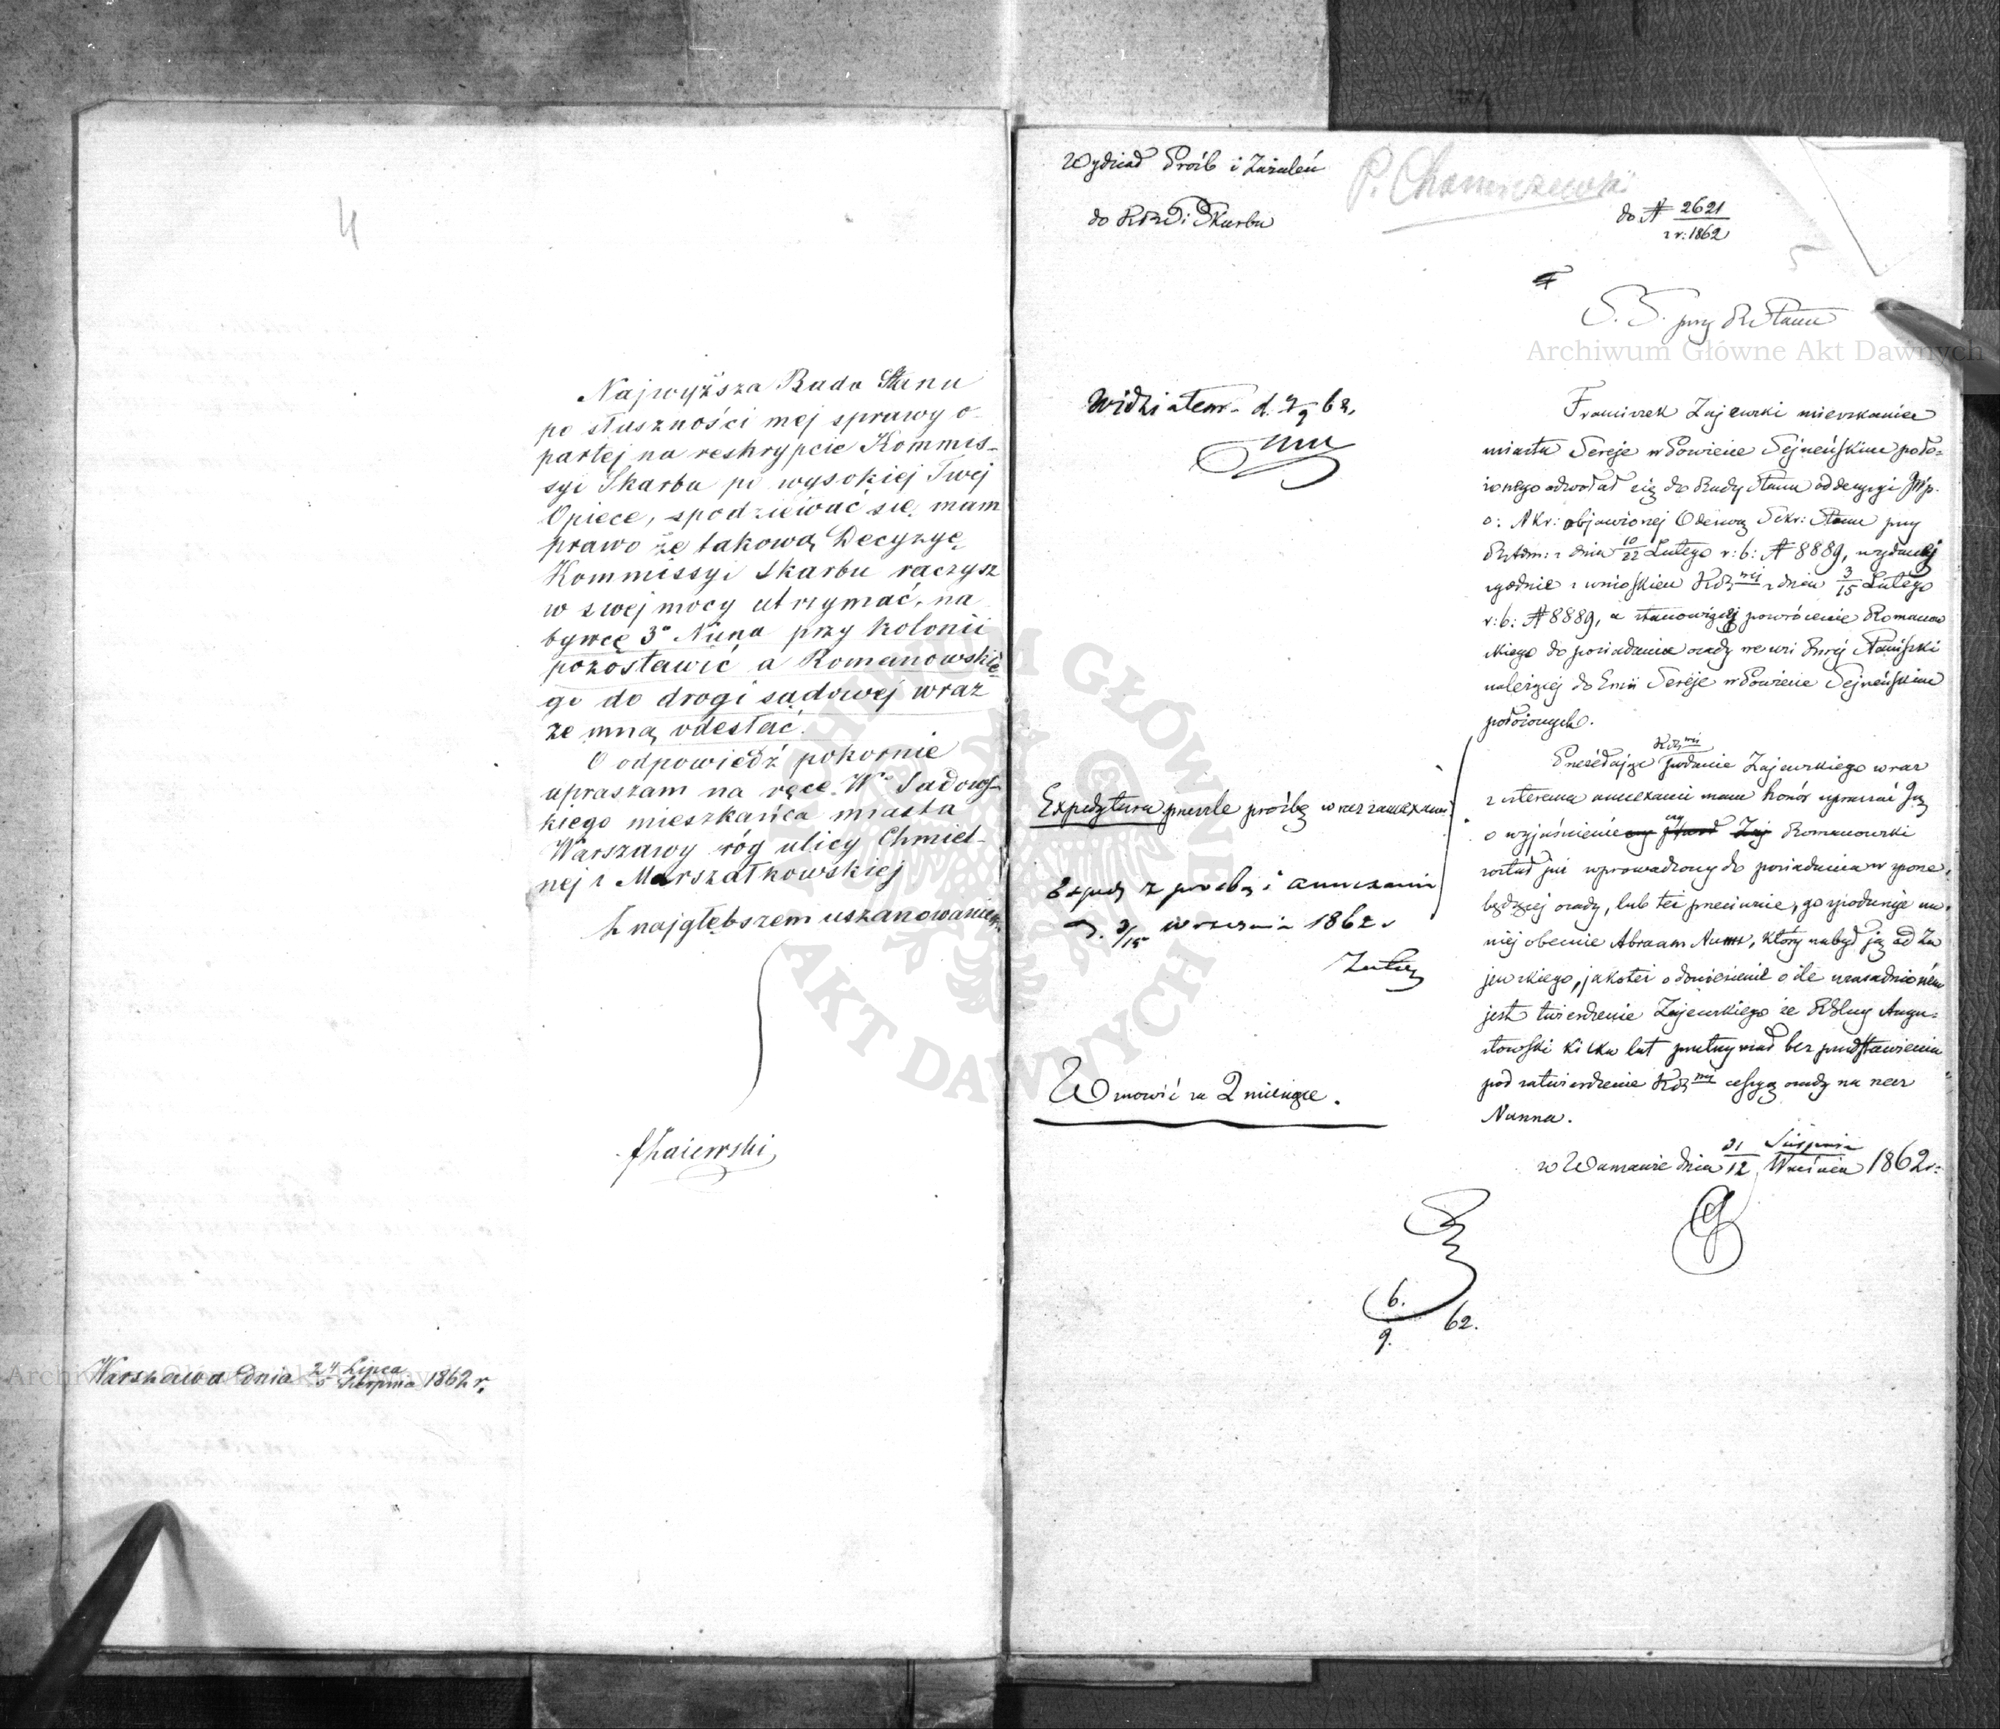 4
Najwyższa Rado Stanu
po słuszności mej sprawy o-
partej na reskrypcie Kommis-
syi Skarbu po wysokiej Twej
Opiece, spodziewać się mam
prawo że takową Decyzyę
Kommissyi Skarbu raczysz
w swej mocy utrzymać, na
bywcę 3º Nuna przy kolonii
pozostawić a Romanowskie-
go do drogi sądowej wraz
ze mną odesłać.
O odpowiedź pokornie
upraszam na ręce W. Sadows-
kiego mieszkańca miasta
Warszawy róg ulicy Chmiel-
nej i Marszałkowskiej
Z najgłębszem uszanowaniem
FZaiewski
Warszawa dnia 24 Lipca / 5 Sierpnia 1862 r.
Wydział Próśb i Zażaleń
do KRP i Skarbu
P. Chomiczewski
do N 2621
z r: 1862
5
S. S. przy R Stanu
Widziałem d. 9/9 62.
Franciszek Zajewski mieszkaniec
miasta Sereje w Powiecie Sejneńskim poło-
żonego odwołał się do Rady Stanu od decyzyi
objawionej Odezwą Sekr: Stanu przy
RAdm: z dnia 10/22 Lutego r: b: N 8889, wydanej
zgodnie z wnioskiem z dnia 3/15 Lutego
r: b: N 8889, a stanowiącej powrócenie Romanow
skiego do posiadania osady we wsi
należącej do Sereje w Powiecie Sejneńskim
położonych.
Przesyłając podanie Zajewskiego wraz
z annexami mam honor upraszać Ją
o wyjaśnienie czy Romanowski
został już wprowadzony do posiadania w spore
będącej osady, lub też przeciwnie, gospodaruje na
niej obecnie Abraam Nunn, który nabył ją od Za
jewskiego, jakoteż o doniesienie o ile uzasadnionem
jest twierdzenie Zajewskiego że Augu-
stowski kilka lat przetrzymał bez przedstawienia
pod zatwierdzenie cessyą osady na rzecz
Nunna.
w Warszawie dnia 31 Sierpnia / 12 Września 1862 r:
Expedytura prześle prośbę wraz z annexami
Exped z prośbą i annexami
d. 3/15 Września 1862 r
Wznowić za 2 miesiące.
6.
9. 62.
Archiwum Główne Akt Dawnych
ARCHIWUM GŁÓWNE
AKT DAWNYCH
Archiwum Główne Akt Dawnych